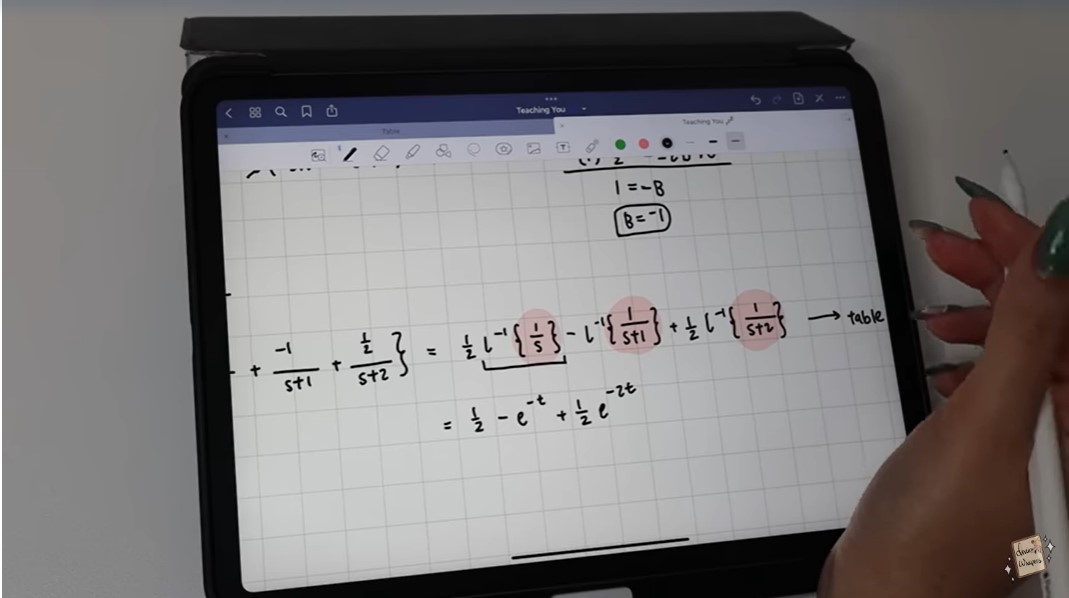 Teaching You
Table
Teaching You
1 = -B
B = -1
+ -1/(s+1) + ½/(s+2) } = ½ L⁻¹{1/s} - L⁻¹{1/(s+1)} + ½ L⁻¹{1/(s+2)} → table
= ½ - e^(-t) + ½ e^(-2t)